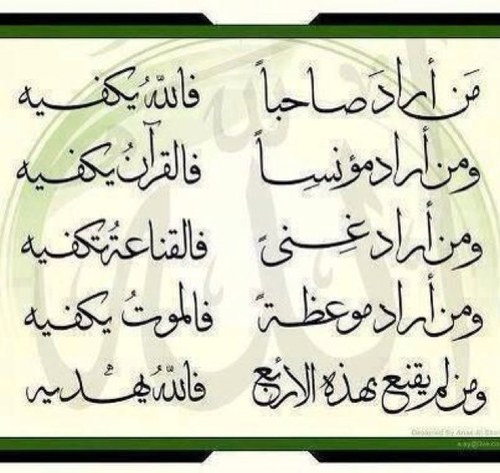 مَن أرادَ صاحباً فاللهُ يكفيه
ومن أراد مؤنساً فالقرآنُ يكفيه
ومن أراد غِنىً فالقناعةُ تكفيه
ومن أراد موعظةً فالموتُ يكفيه
ومن لم يقنع بهذه الأربع فاللهُ يهديه